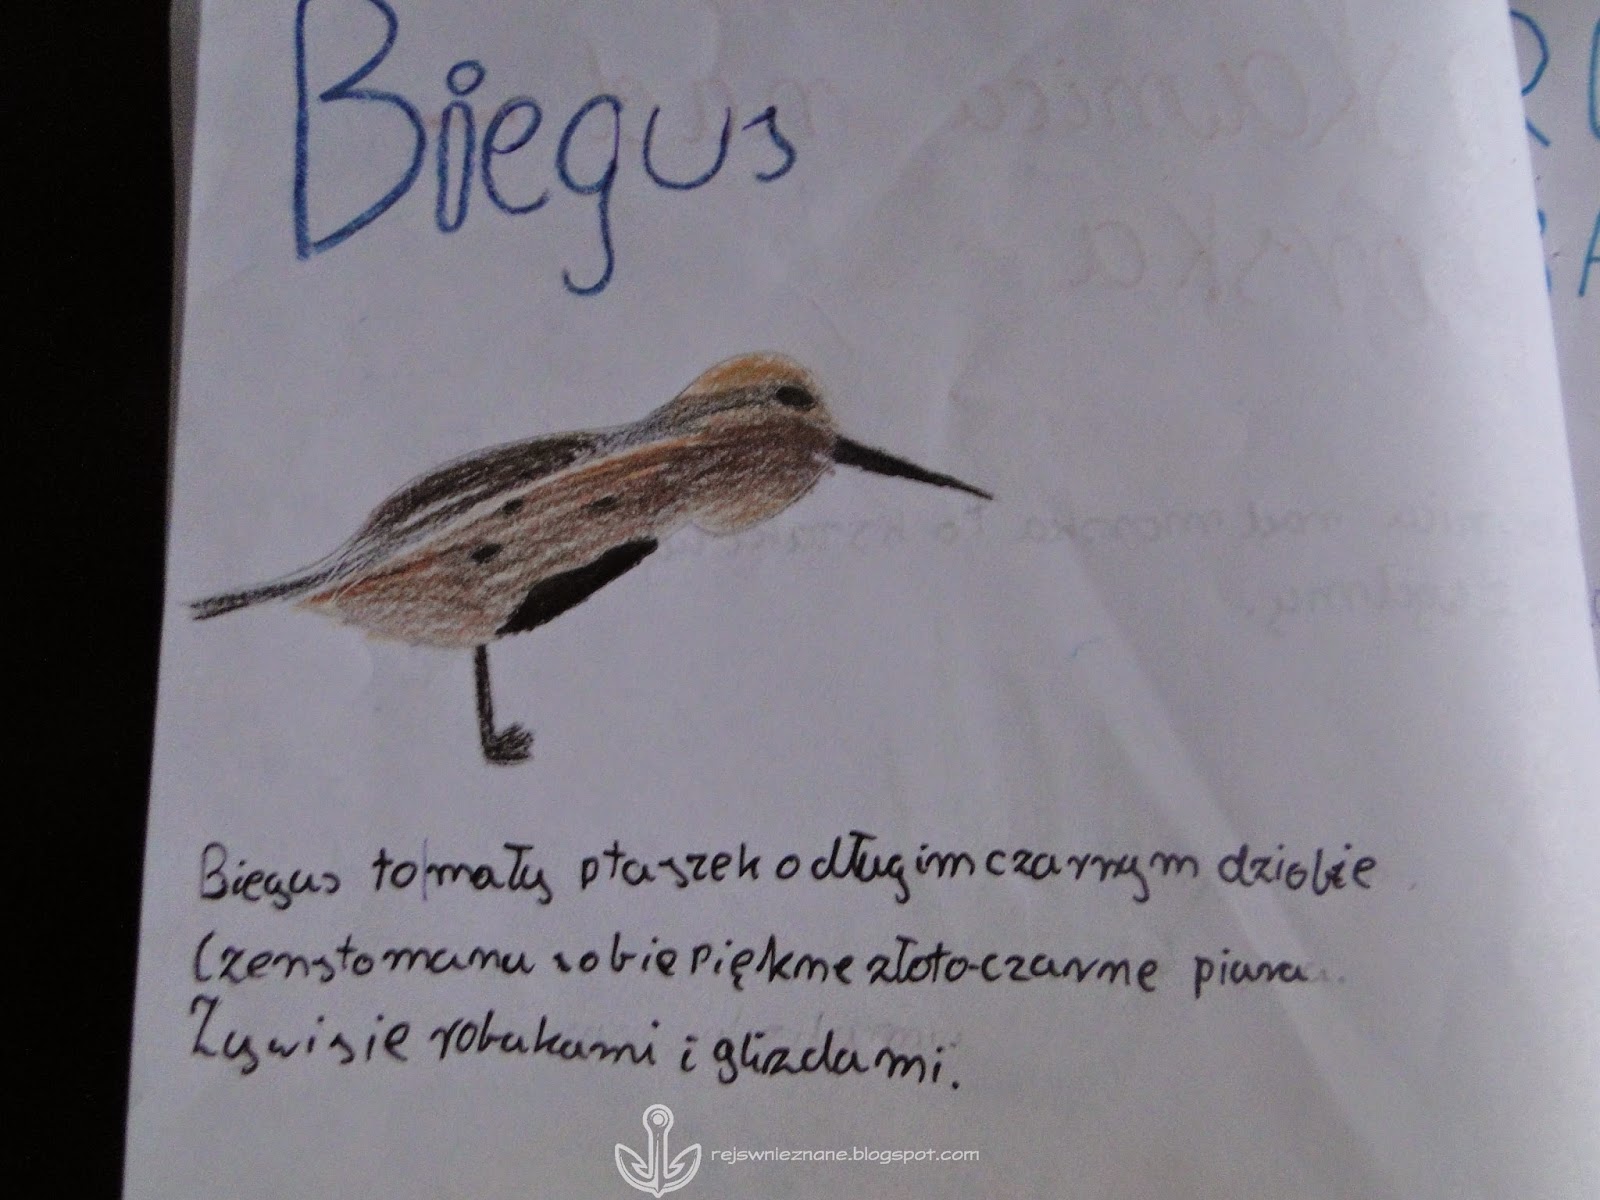 Biegus
Biegus to mały ptaszek o długim czarnym dziobie
Czensto ma na sobie piękne złoto-czarne piura
Żywi sie robakami i glizdami.
rejswnieznane.blogspot.com